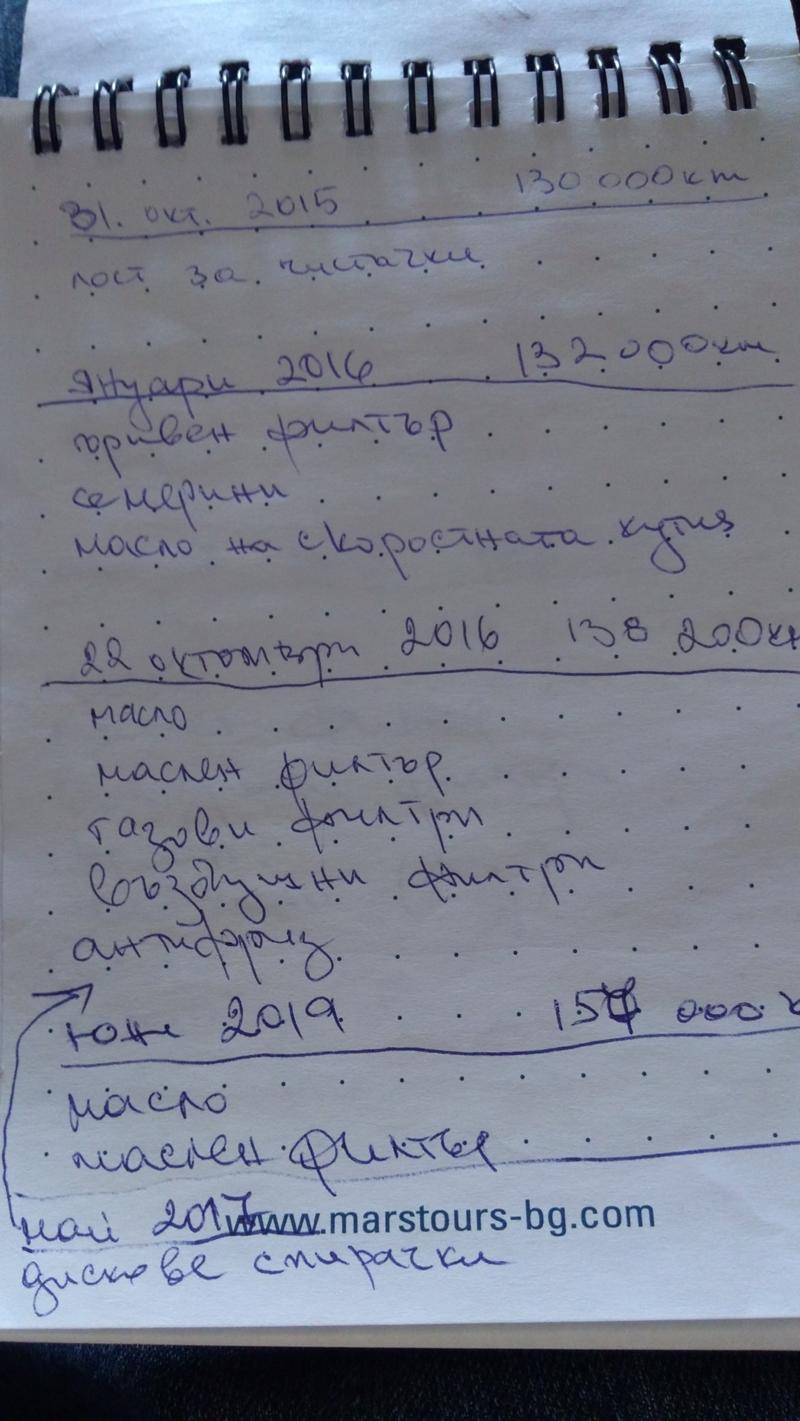 31. окт. 2015 130 000 km
лост за чистачки
януари 2016 132 000 km
горивен филтър
семеринги
масло на скоростната кутия
22 октомври 2016 138 200 km
масло
маслен филтър
газови филтри
въздушни филтри
антифриз
юни 2019 000
масло
маслен филтър
май 2017
www.marstours-bg.com
дискове спирачки